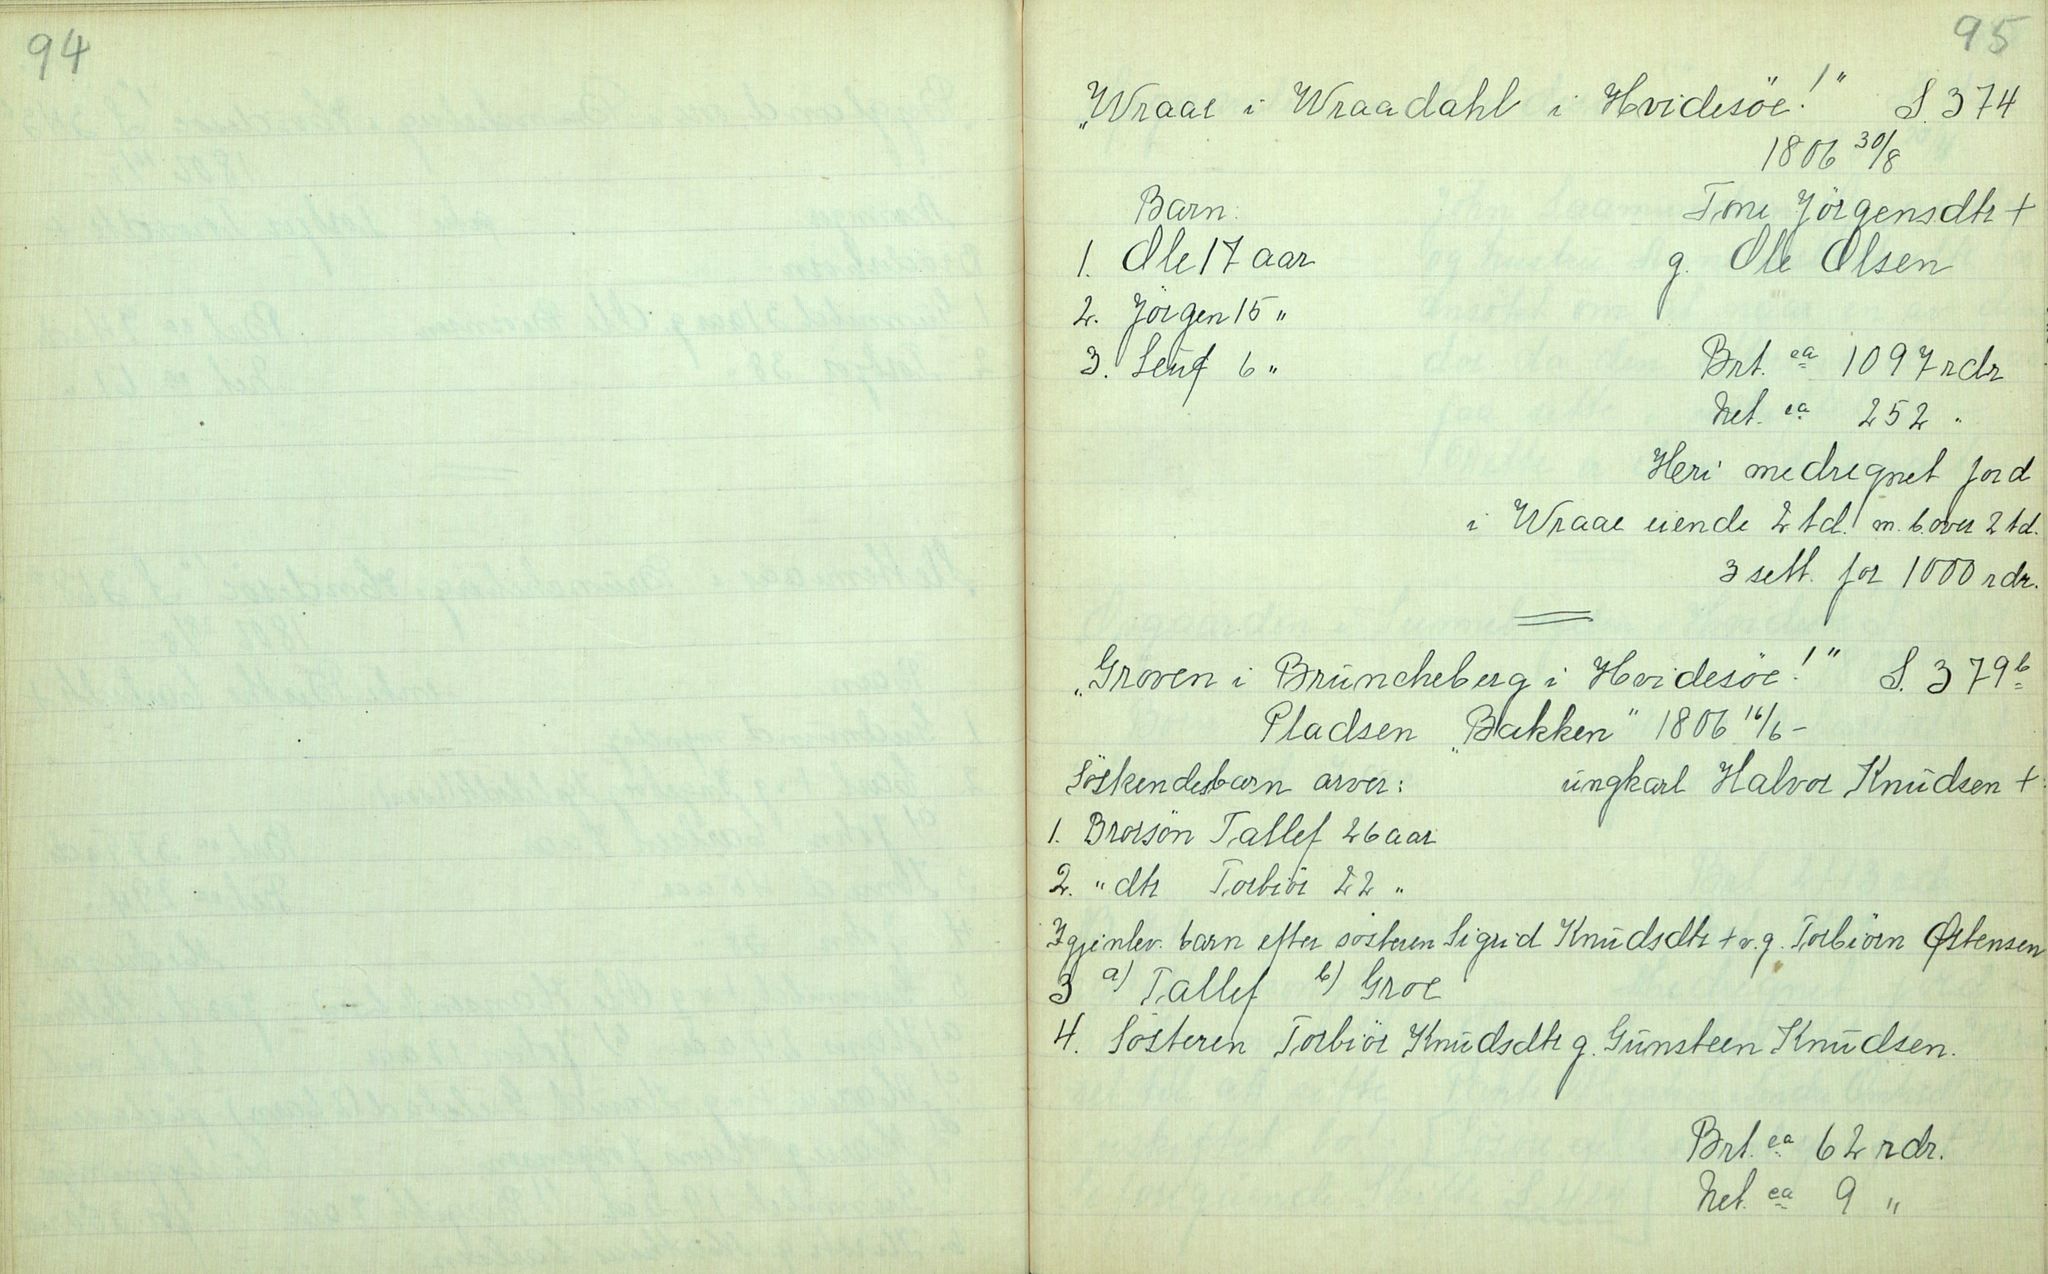 94
95
„Wraae i Wraadahl i Hvidesöe!" S. 374
1806 30/8
Barn: Tone Jörgensdtr +
1. Ole 17 aar g. Ole Olsen
2. Jörgen 15 „
3. Leuf 6 „ Brt. ca 1097 rdr
Net. ca 252 „
Heri medregnet jord
i Wraae eiende 2 td. m. b. over 2 td.
3 sett. for 1000 rdr.
„Groven i Brüncheberg i Hvidesöe!" S. 379b
Pladsen „Bakken" 1806 16/6 –
Söskendebarn arver: üngkarl Halvor Knüdsen +
1. Brorsön Tallef 26 aar
2. „ dtr Torbiör 22 „
Igjenlev. barn efter sösteren Sigrid Knüdsdtr + v. g. Torbiörn Østensen
3 a) Tallef b) Groe
4. Sösteren Torbiör Knüdsdtr g. Günsteen Knüdsen.
Brt. ca 62 rdr.
Net. ca 9 „